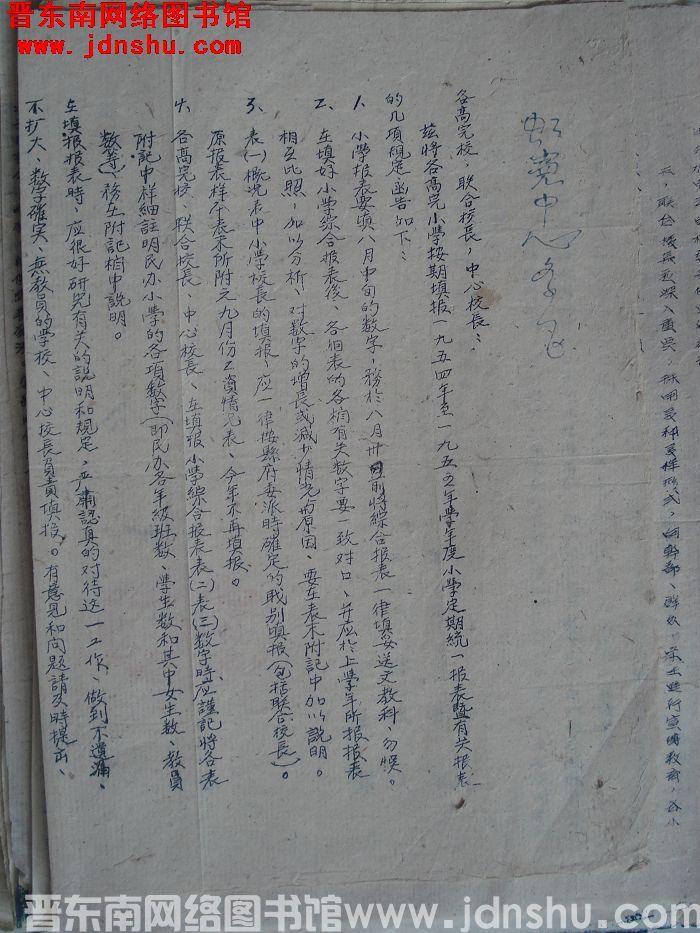 晋东南网络图书馆
www.jdnshu.com
各高完校、联合校长,中心校长:
兹将各高完小学按期填报一九五四年至一九五五年学年度小学定期統一报表暨有关报表
的几項規定函告如下:
1、小学报表要填八月中旬的数字,務於八月卅日前将綜合报表一律填妥送文教科,勿悞。
2、在填好小学綜合报表後,各個表的各栏有关数字要一致对口,并应於上學年所报报表
相互比照,加以分析,对数字的增長或减少情况与原因,要在表末附記中加以說明。
3、表(一)概况表中小学校長的填报,应一律按縣府委派時確定的戝别填报(包括联合校長)。
原报表样个表末所附元九月份工資情况表,今年不再填报。
4、各高完校、联合校長、中心校長、在填报小學綜合报表表(二)表(三)数字時应謹記将各表
附記中样細註明民办小學的各項数字(即民办各年級班数、學生数和其中女生数、教員
数等)務在附記栏中說明。
在填报报表時、应很好研究有关的說明和規定,严肅認真的对待这一工作、做到不遺漏、
不扩大、数字確实、無教員的学校、中心校長負責填报。有意見和問題請及時提出、
晋东南网络图书馆www.jdnshu.com